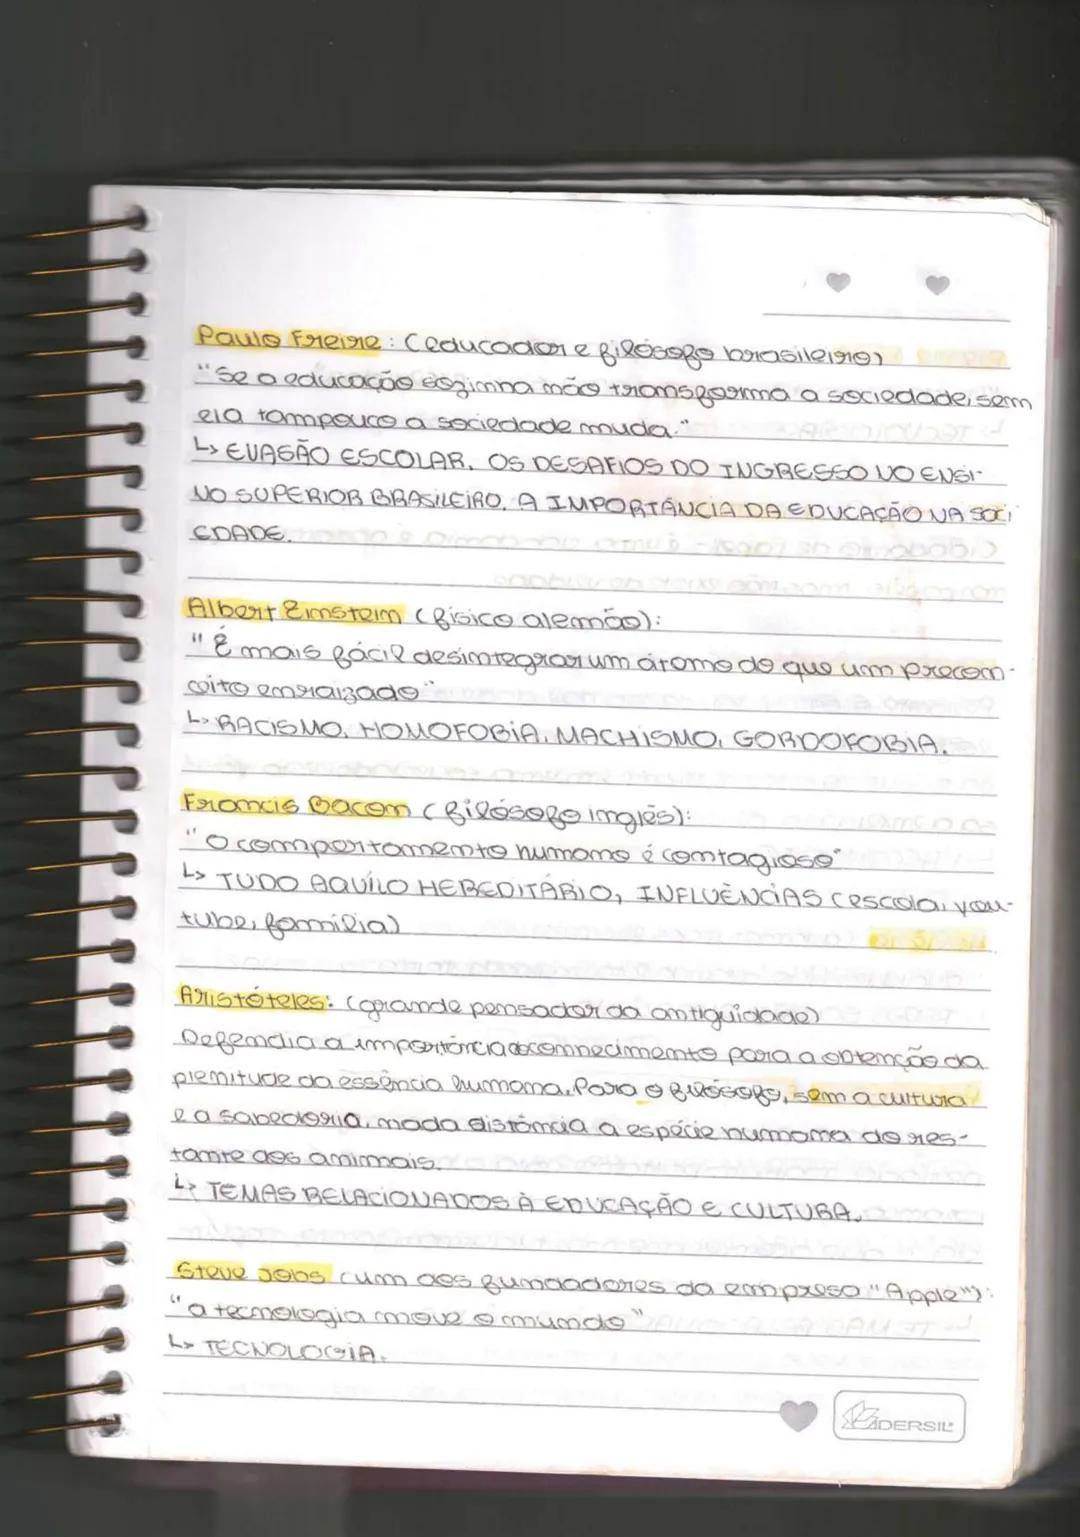 Paulo Freire: (educador e filósofo brasileiro)
"Se a educação sozinha não transforma a sociedade, sem
ela tampouco a sociedade muda."
↳ EVASÃO ESCOLAR, OS DESAFIOS DO INGRESSO NO ENSI-
NO SUPERIOR BRASILEIRO, A IMPORTÂNCIA DA EDUCAÇÃO NA SOCI
EDADE.
Albert Einstein (físico alemão):
"É mais fácil desintegrar um átomo do que um precon-
ceito enraizado"
↳ RACISMO, HOMOFOBIA, MACHISMO, GORDOFOBIA.
Francis Bacon (filósofo inglês):
"O comportamento humano é contagioso"
↳ TUDO AQUILO HEREDITÁRIO, INFLUÊNCIAS (escola, you-
tube, família)
Aristóteles: (grande pensador da antiguidade)
Defendia a importância do conhecimento para a obtenção da
plenitude da essência humana. Para o filósofo, sem a cultura
e a sabedoria, nada distância a espécie humana do res-
tante dos animais.
↳ TEMAS RELACIONADOS À EDUCAÇÃO E CULTURA.
Steve Jobs (um dos fundadores da empresa "Apple"):
"a tecnologia move o mundo"
↳ TECNOLOGIA.
CADERSIL